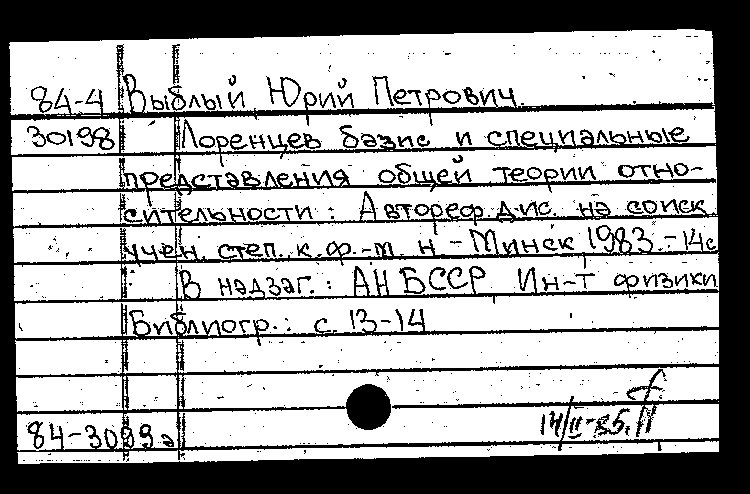 84-4 Выблый Юрий Петрович.
30198 Лоренцев базис и специальные
представления общей теории отно-
сительности: Автореф. дис. на соиск.
учен. степ. к. ф.-м. н. - Минск, 1983. - 14с
В надзаг.: АН БССР. Ин-т физики
Библиогр.: с. 13-14
14/II-85.
84-3099а